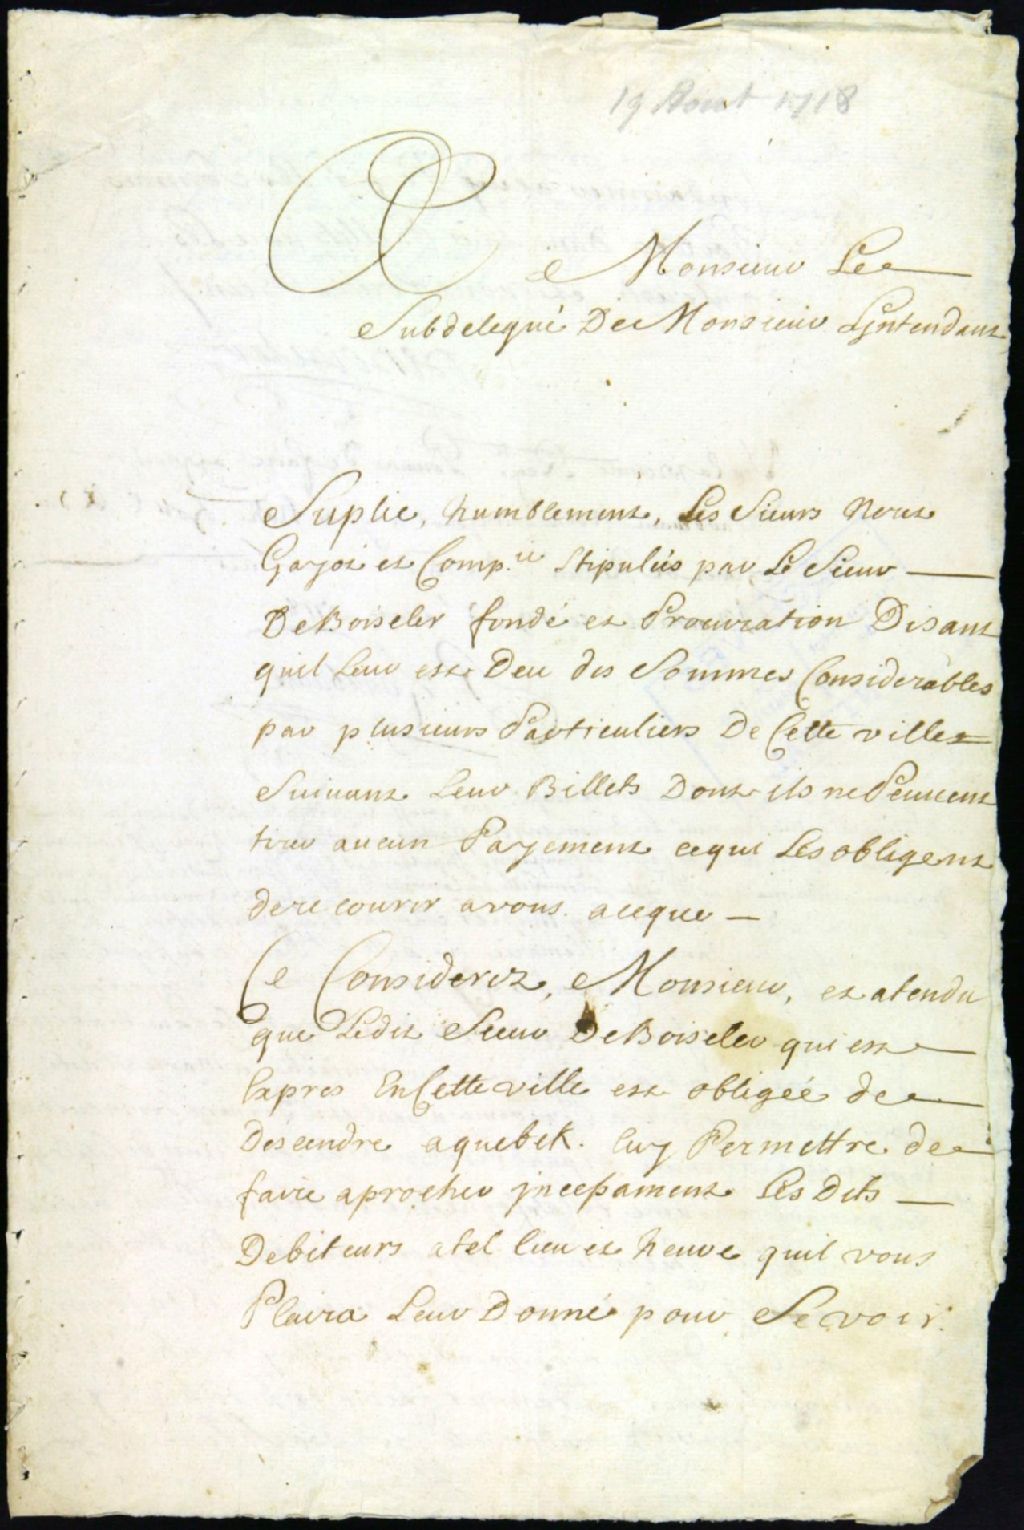 19 Aout 1718
A Monsieur Le
Subdelegué De Monsieur Lintendant
Suplie, humblement, Les Sieurs Neret
Gayot et Comp.ie Stipulés par Le Sieur
DeBoiseler fondé et Procuration Disant
quil Leur est Deu des Sommes Considerables
par plusieurs Particuliers De Cette ville
Suivant Leur Billets Dont ils ne Peuvent
tirer aucun Payement cequi Les obligent
derecourir avous aceque
Ce Considerez, Monsieur, et atendu
que Ledit Sieur DeBoiseler qui est
Expres En Cette ville est obligéé de
Descendre aquebek. luy Permettre de
faire aprocher jncessament Les Dits
Debiteurs atel lieu et heure quil vous
Plaira Leur Donné pour Se voir